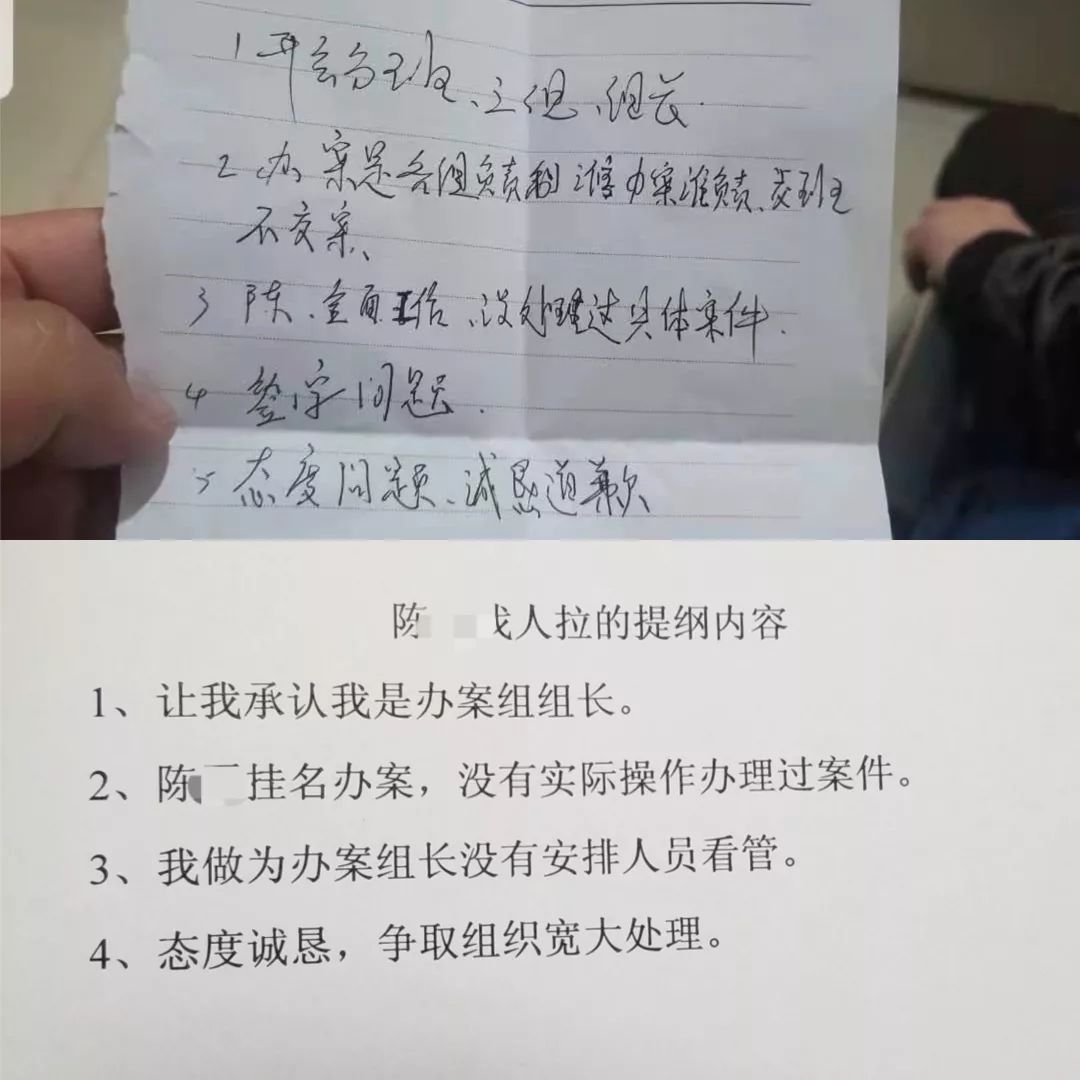 1 开会分班、主组、组长.
2 办案是各组负责和谁办案谁负责、交班
不交案、
3 陈、全面工作、没处理过具体案件.
4 签字问题.
5 态度问题、诚恳道歉
陈 找人拉的提纲内容
1、让我承认我是办案组组长。
2、陈 挂名办案，没有实际操作办理过案件。
3、我做为办案组长没有安排人员看管。
4、态度诚恳，争取组织宽大处理。